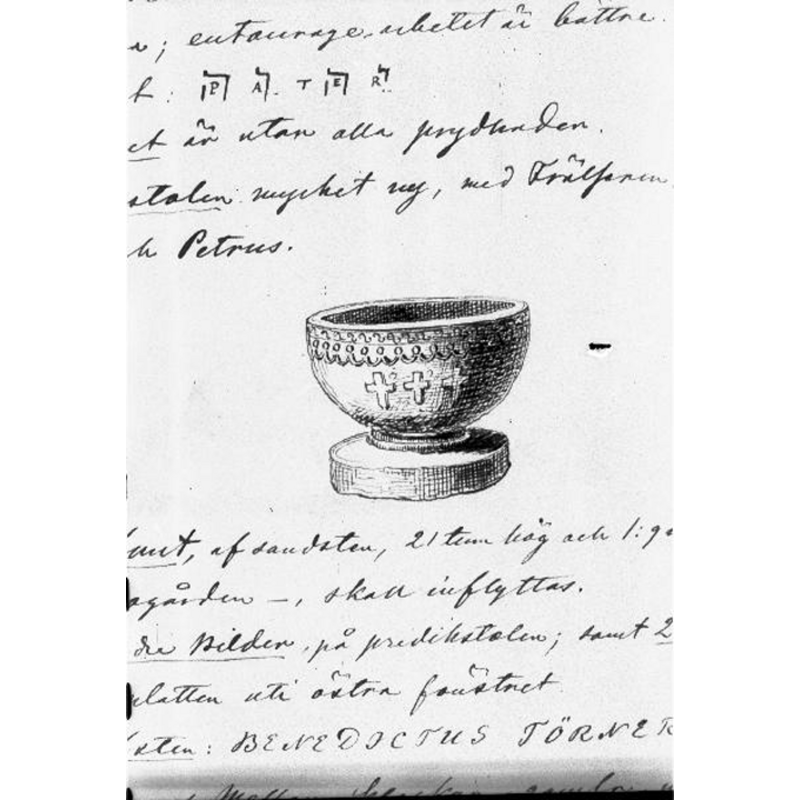 ; entourage-arbetet är bättre.
: P A. T E R
är utan alla prydnader.
stolen mycket ny, med Frälsaren
Petrus.
unt, af sandsten, 21 tum hög och 1:9
agården —, skall inflyttas.
Bilder, på predikstolen; samt 2
latten uti östra fönstret
sten: BENEDICTUS TÖRNER